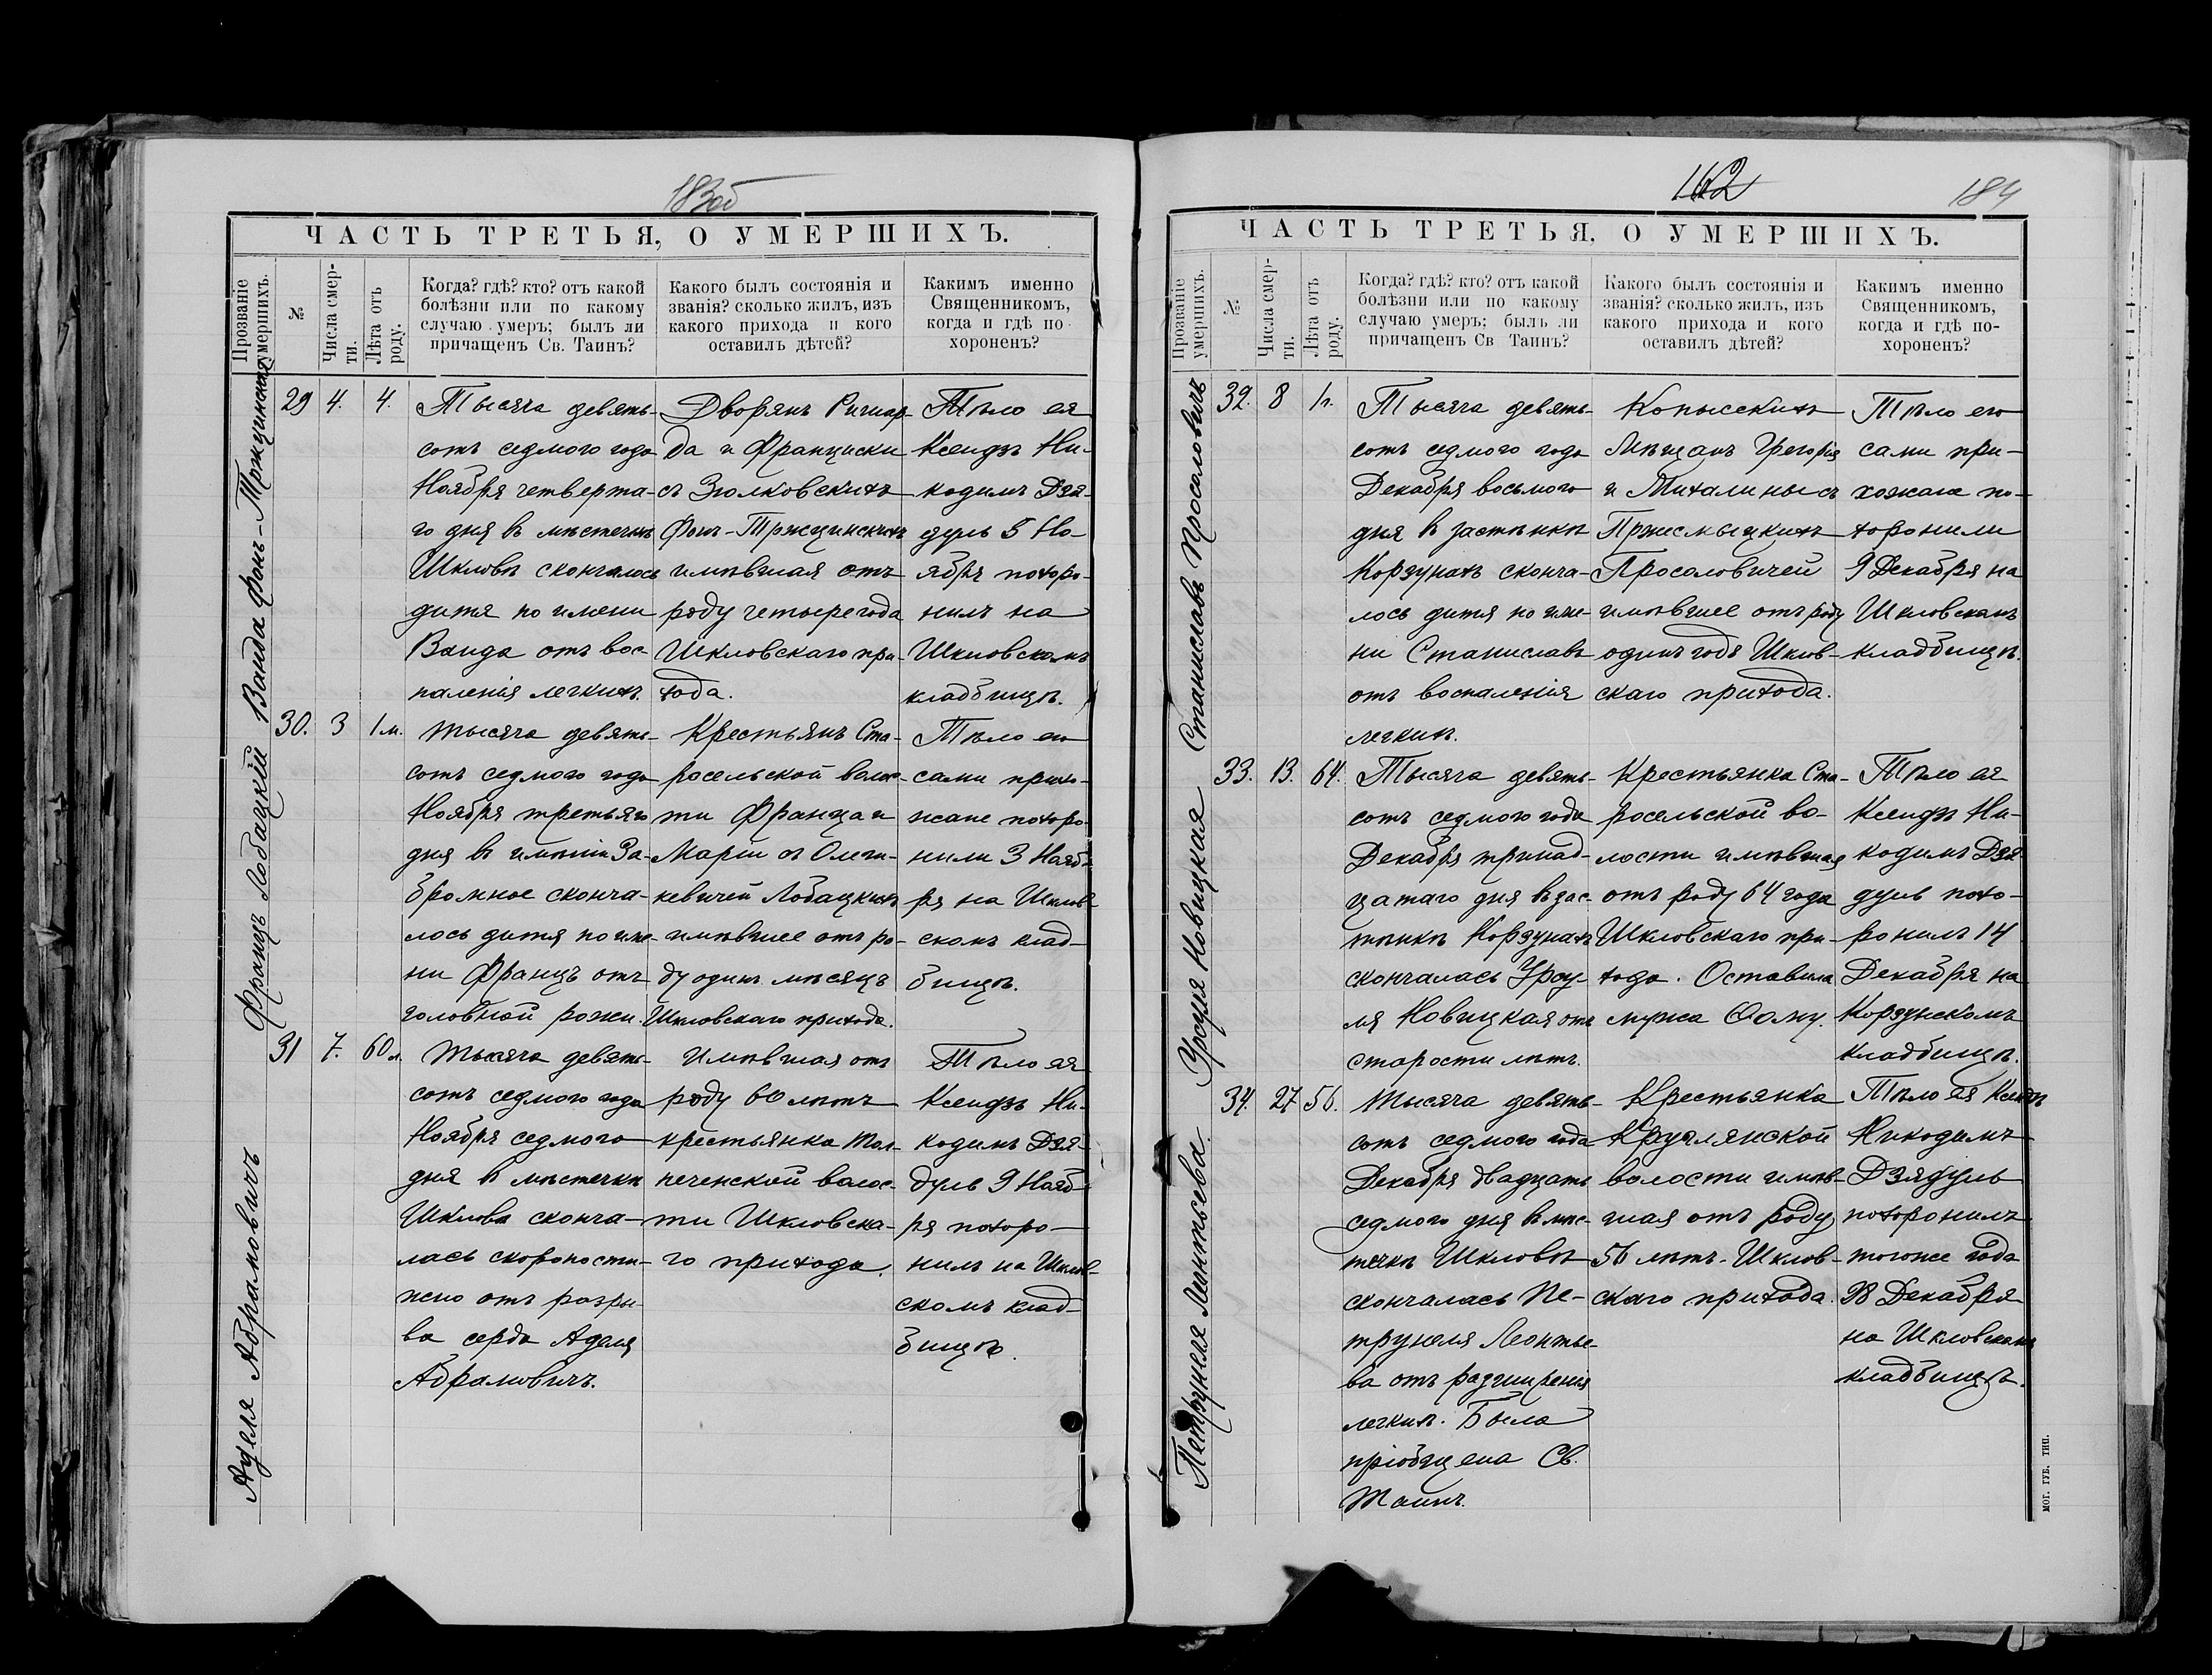 183об
ЧАСТЬ ТРЕТЬЯ, О УМЕРШИХЪ.
Прозваніе умершихъ.
№
Числа смерти.
Лѣта отъ роду.
Когда? гдѣ? кто? отъ какой
болѣзни или по какому
случаю умеръ; былъ ли
причащенъ Св. Таинъ?
Какого былъ состоянія и
званія? сколько жилъ, изъ
какого прихода и кого
оставилъ дѣтей?
Каким​ъ именно
Священникомъ,
когда и гдѣ по-
хороненъ?
Ванда фонъ-Тржцинская
29 4. 4.
Тысяча девять-
сотъ седмого года
Ноября четверта-
го дня въ мѣстечкѣ
Шкловѣ скончалось
дитя по имени
Ванда отъ вос-
паленія легкихъ.
Дворянъ Ричар-
да и Франциски
съ Зюлковскихъ
Фонъ-Тржцинскихъ
имѣвшая отъ
роду четыре года
Шкловскаго при-
хода.
Тѣло ея
Ксендзъ Ни-
кодимъ Дзя-
дуль 5 Но-
ября похоро-
нилъ на
Шкловскомъ
кладбищѣ.
Францъ Лобацкій
30. 3 1 м.
Тысяча девять-
сотъ седмого года
Ноября третьяго
дня въ имѣніи За-
бромное сконча-
лось дитя по име-
ни Францъ отъ
головной рожи.
Крестьянъ Ста-
росельской волос-
ти Франца и
Маріи съ Олеш-
кевичей Лобацкихъ
имѣвшее отъ ро-
ду одинъ мѣсяцъ
Шкловскаго прихода.
Тѣло его
сами прихо-
жане похоро-
нили 3 Нояб-
ря на Шклов-
скомъ клад-
бищѣ.
Аделя Абрамовичъ
31 7. 60 л.
Тысяча девять-
сотъ седмого года
Ноября седмого
дня въ мѣстечкѣ
Шкловѣ сконча-
лась скоропости-
жно отъ разры-
ва серда Аделя
Абрамовичъ.
Имѣвшая отъ
роду 60 лѣтъ
крестьянка Тол-
печенской волос-
ти Шкловска-
го прихода.
Тѣло ея
Ксендзъ Ни-
кодимъ Дзя-
дуль 9 Нояб-
ря похоро-
нилъ на Шклов-
скомъ клад-
бищѣ.
162
184
ЧАСТЬ ТРЕТЬЯ, О УМЕРШИХЪ.
Прозваніе умершихъ.
№
Числа смерти.
Лѣта отъ роду.
Когда? гдѣ? кто? отъ какой
болѣзни или по какому
случаю умеръ; былъ ли
причащенъ Св Таинъ?
Какого былъ состоянія и
званія? сколько жилъ, изъ
какого прихода и кого
оставилъ дѣтей?
Какимъ именно
Священникомъ,
когда и гдѣ по-
хороненъ?
Станиславъ Просоловичъ
32. 8 1 г.
Тысяча девять-
сотъ седмого года
Декабря восьмого
дня въ застѣнкѣ
Корзунахъ сконча-
лось дитя по име-
ни Станиславъ
отъ воспаленія
легкихъ.
Копысскихъ
Мѣщанъ Грегорія
и Михалины съ
Пржесмыцкихъ
Просоловичей
имѣвшее отъ роду
одинъ годъ Шклов-
скаго прихода.
Тѣло его
сами при-
хожане по-
хоронили
9 Декабря на
Шкловскомъ
кладбищѣ.
Урсуля Новицкая
33. 13. 64.
Тысяча девять-
сотъ седмого года
Декабря тринад-
цатаго дня въ зас-
тѣнкѣ Корзунахъ
скончалась Урсу-
ля Новицкая отъ
старости лѣтъ.
Крестьянка Ста-
росельской во-
лости имѣвшая
отъ роду 64 года
Шкловскаго при-
хода. Оставила
мужа Ѳому.
Тѣло ея
Ксендзъ Ни-
кодимъ Дзя-
дуль похо-
ронилъ 14
Декабря на
Корзунскомъ
кладбищѣ.
Петрунеля Леонтьева
34. 27 56.
Тысяча девять-
сотъ седмого года
Декабря двадцать
седмого дня въ мѣс-
течкѣ Шкловѣ
скончалась Пе-
трунеля Леонтье-
ва отъ расширенія
легкихъ. Была
пріобщена Св.
Таинъ.
Крестьянка
Круглянской
волости имѣв-
шая отъ роду
56 лѣтъ. Шклов-
скаго прихода.
Тѣло ея Ксендзъ
Никодимъ
Дзядуль
похоронилъ
тогоже года
28 Декабря
на Шкловскомъ
кладбищѣ.
МОГ. ГУБ. ТИП.